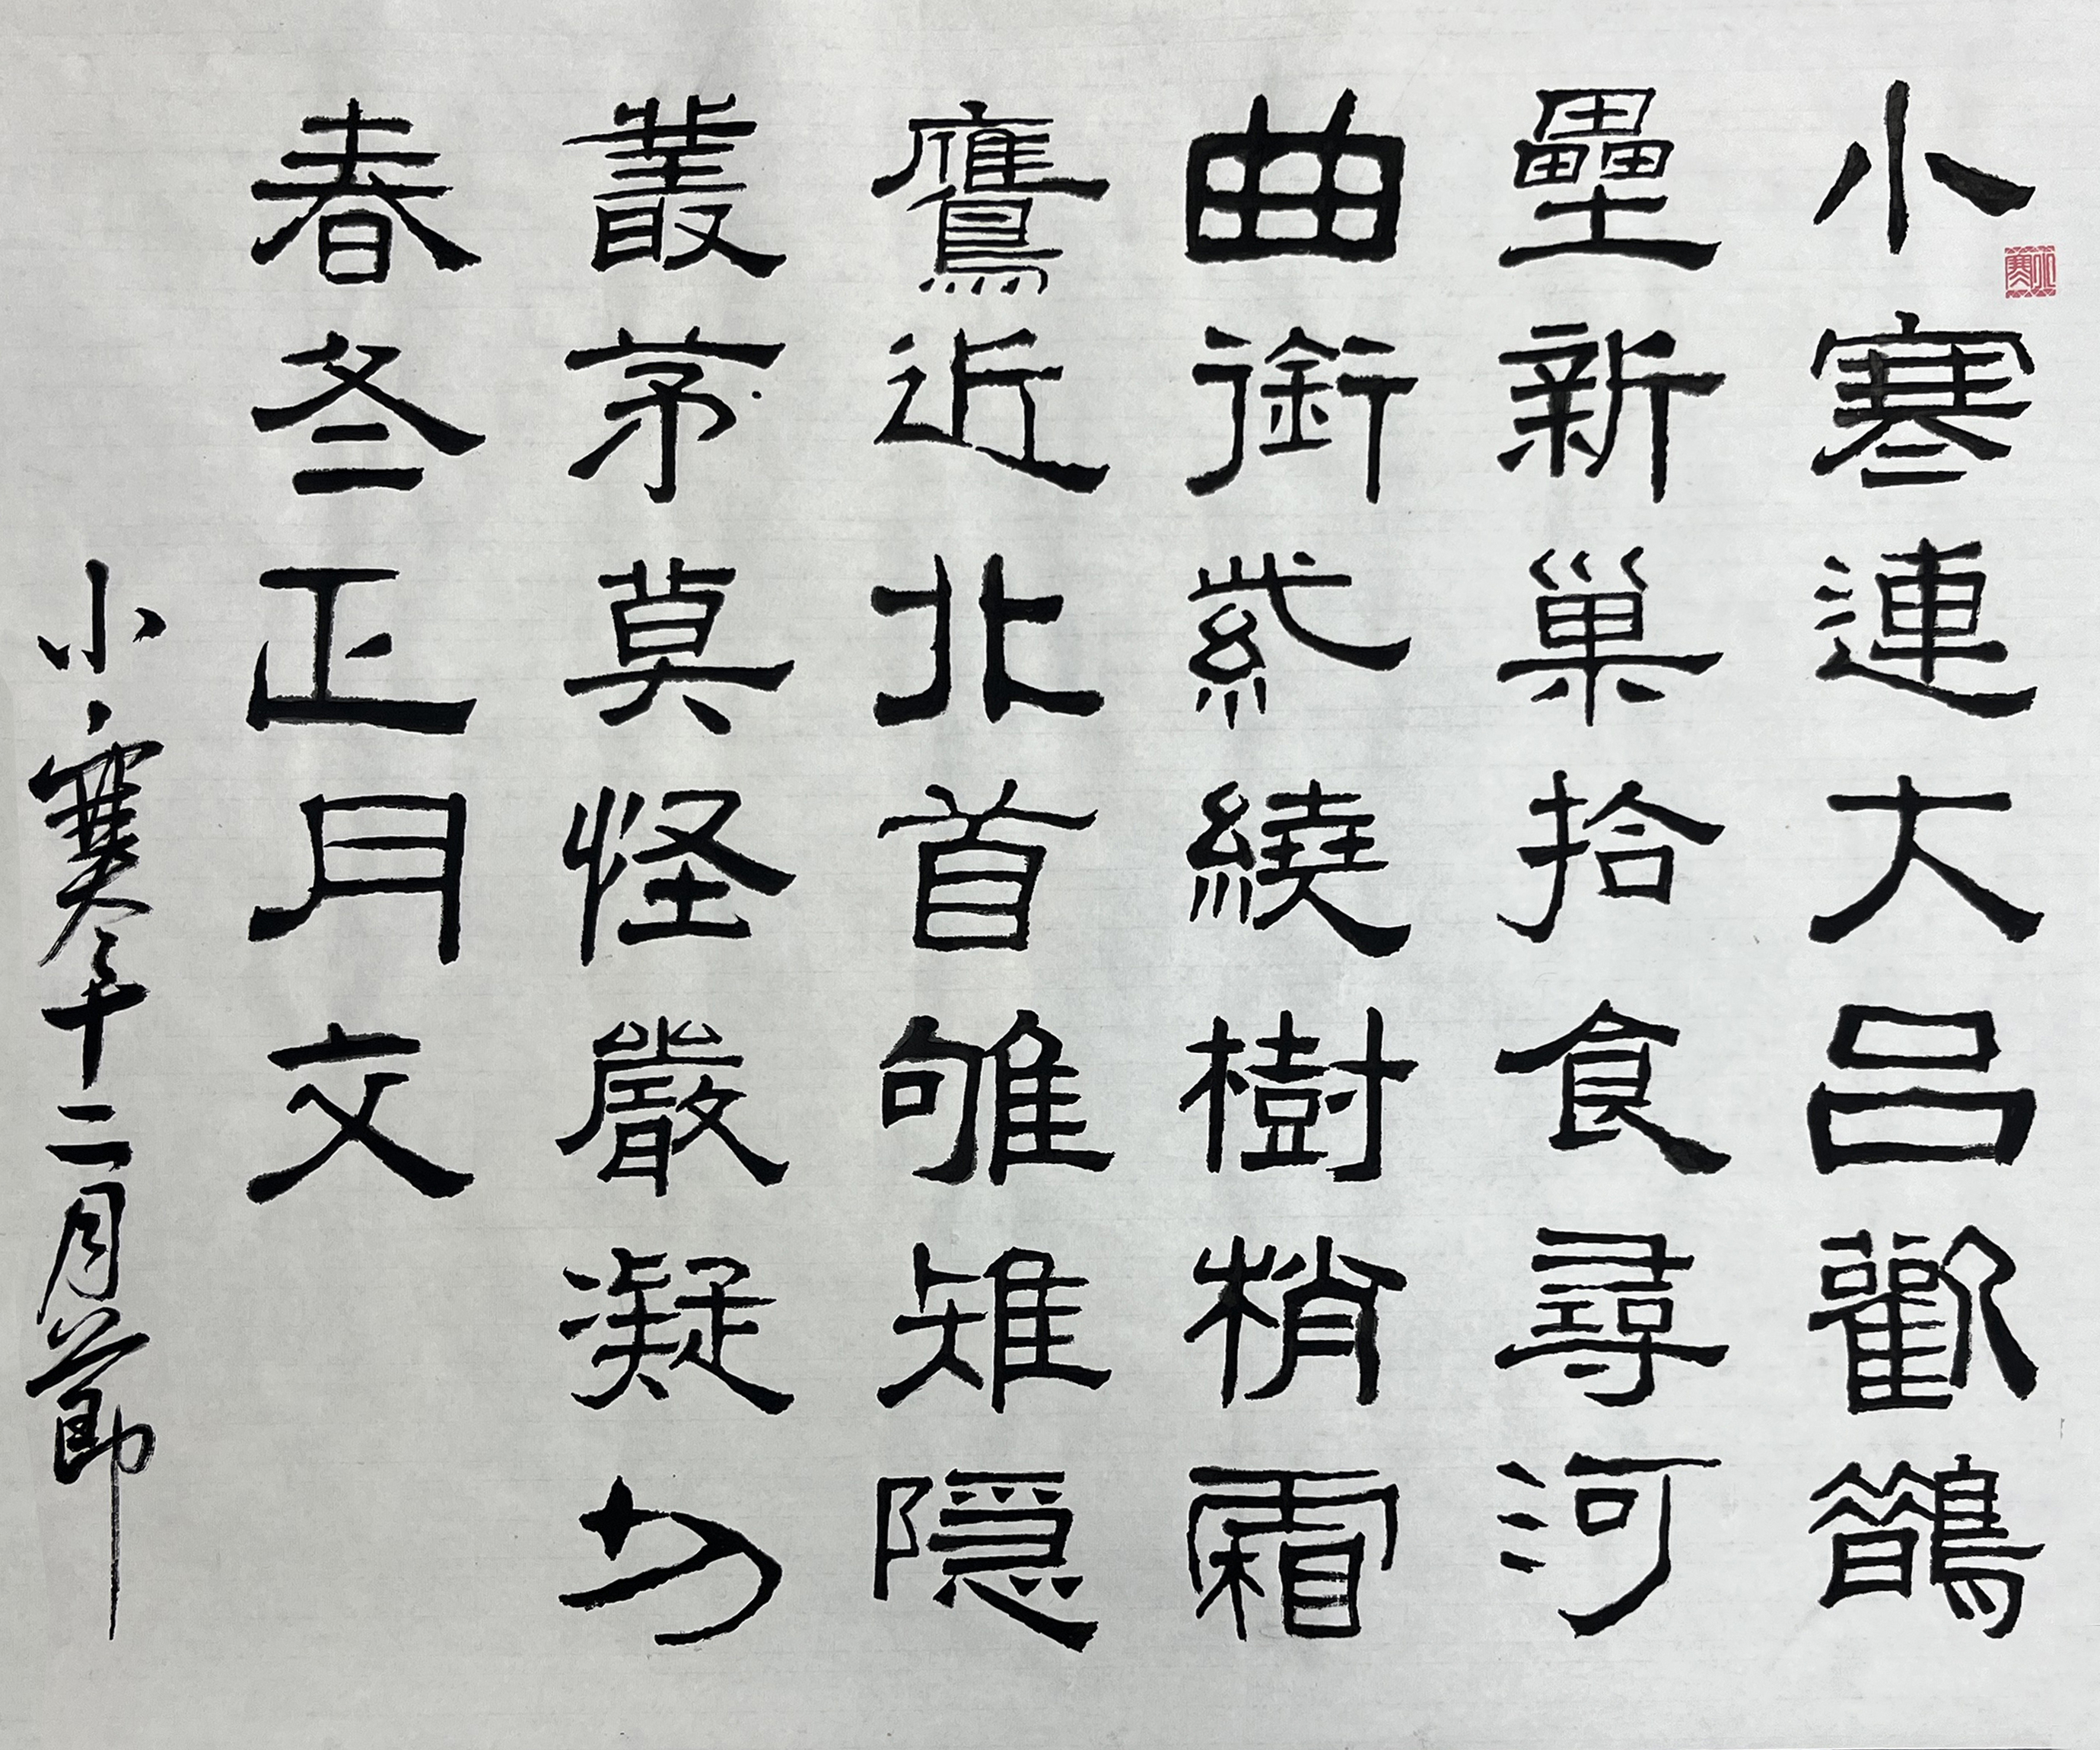 小寒連大呂歡鵲
壘新巢拾食尋河
曲銜紫繞樹梢霜
鷹近北首雊雉隱
叢茅莫怪嚴凝切
春冬正月交
小寒十二月節
小寒